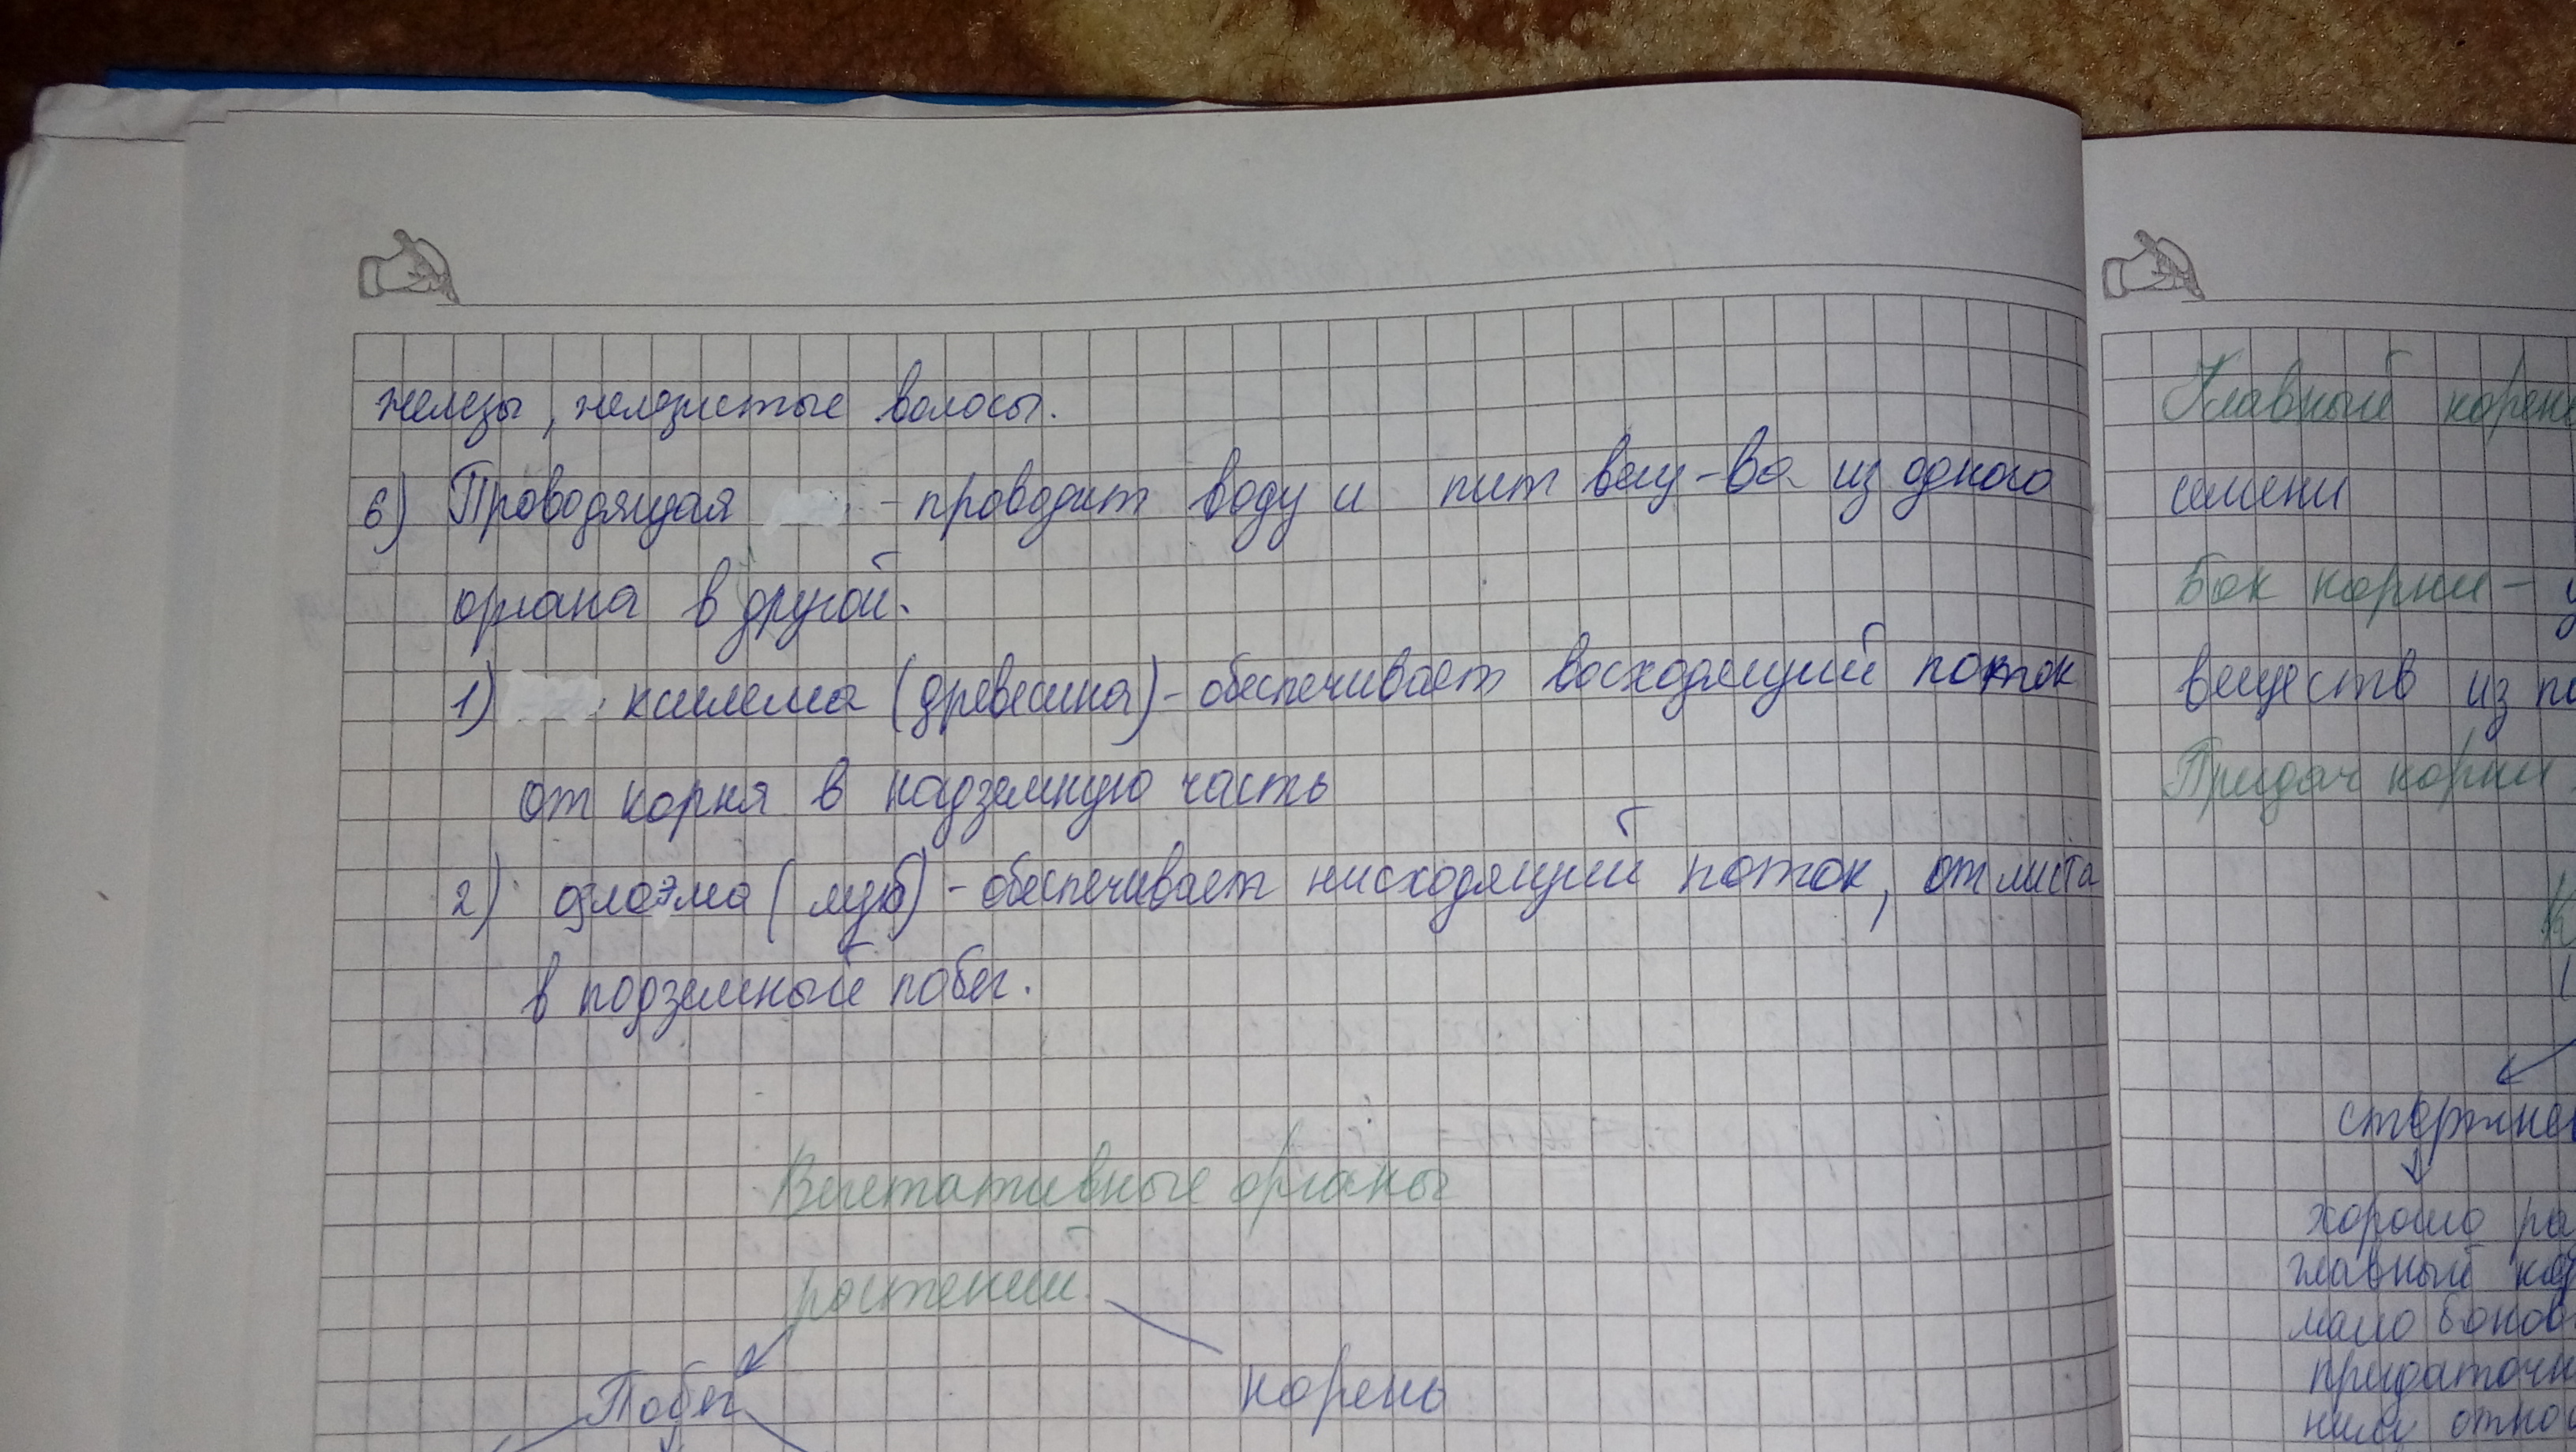 железы, железистые волосы.
6) Проводящая - проводит воду и пит вещ-ва из одного
органа в другой.
1) ксилема (древесина) - обеспечивает восходящий поток
от корня в надземную часть
2) флоэма (луб) - обеспечивает нисходящий поток, от листа
в подземный побег.
Вегетативные органы
растений
Побег корень
Главный корень
семени
Бок корни -
веществ из
Придач корни
хорошо
главный
мало